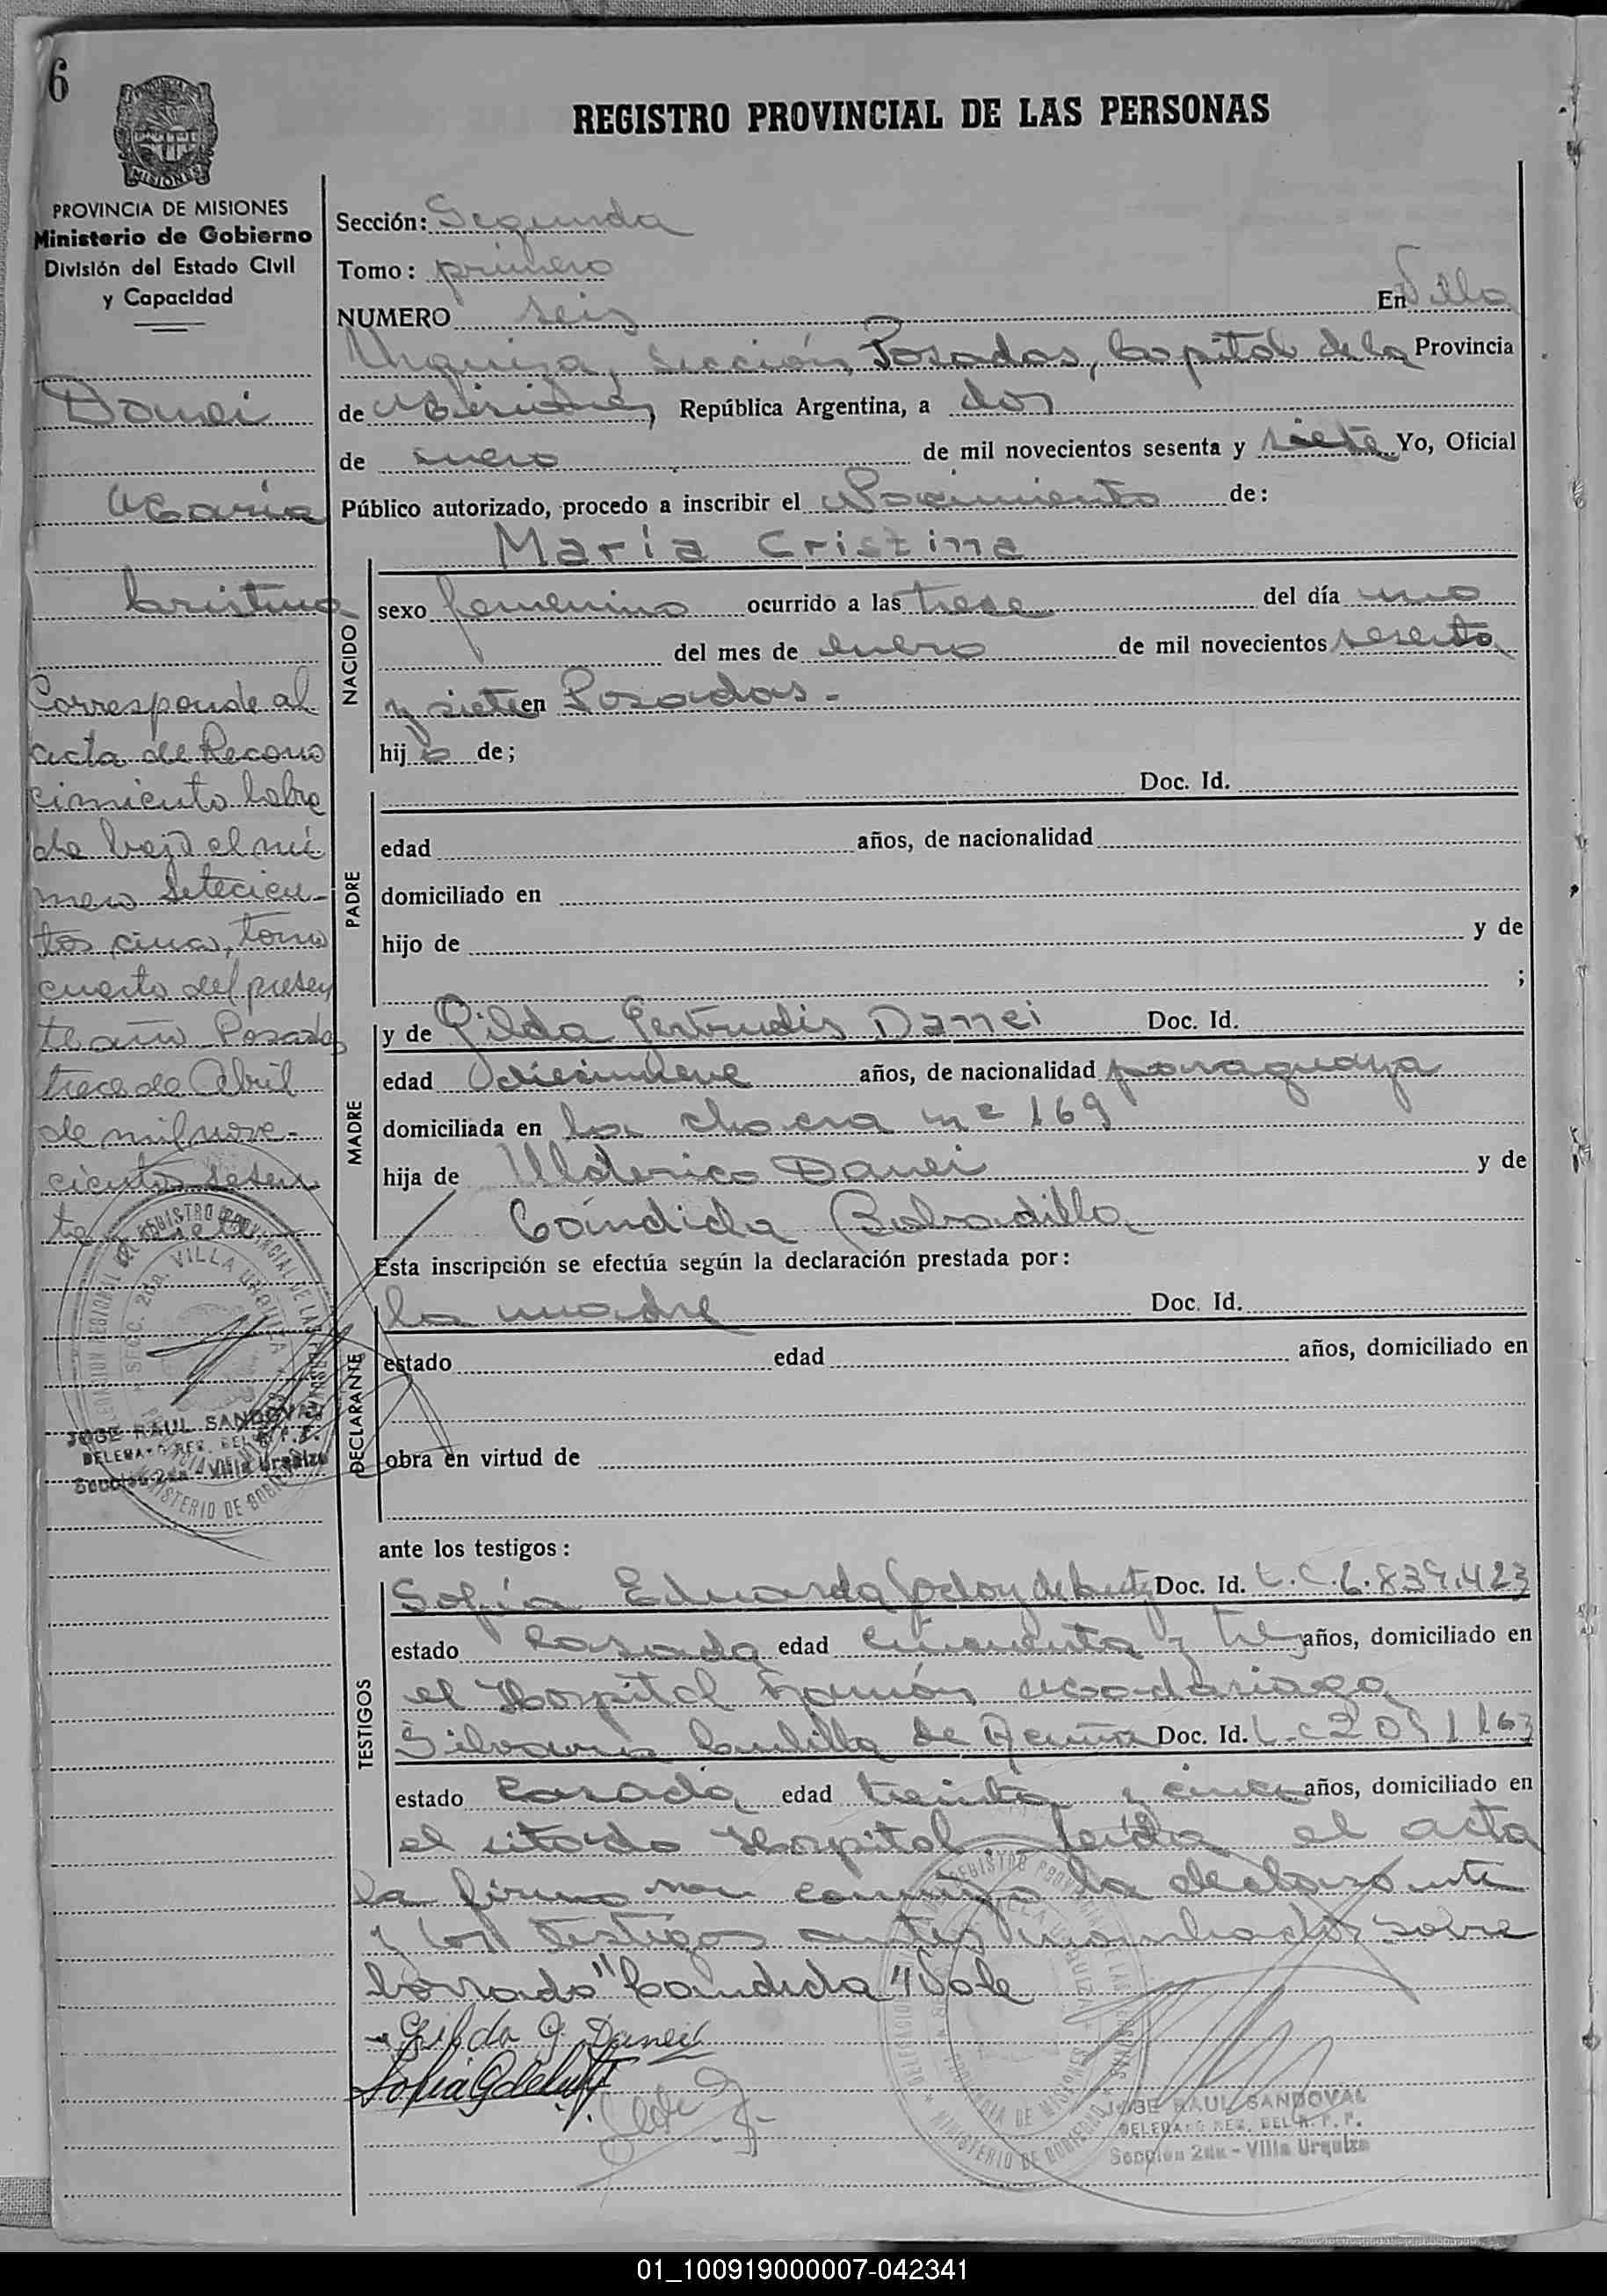 6
REGISTRO PROVINCIAL DE LAS PERSONAS
MISIONES
PROVINCIA DE MISIONES
Ministerio de Gobierno
División del Estado Civil
y Capacidad
Danei
Maria
Cristina
Corresponde al
acta de Recono
cimiento labra
da bajo el nú
mero setecien-
tos cinco, tomo
cuarto del presen
te año Posadas
trece de Abril
de mil nove-
cientos sesen
ta y siete
JOSE RAUL SANDOVAL
DELEGADO REG. DEL R. P. P.
Seccion 2da - Villa Urquiza
Sección: Segunda
Tomo: primero
NUMERO seis En Villa
Urquiza, sección Posadas, Capital de la Provincia
de Misiones, República Argentina, a dos
de enero de mil novecientos sesenta y siete Yo, Oficial
Público autorizado, procedo a inscribir el Nacimiento de:
NACIDO
María Cristina
sexo femenino ocurrido a las trece del día uno
del mes de enero de mil novecientos sesenta
y siete en Posadas.-
hij a de;
PADRE
Doc. Id.
edad años, de nacionalidad
domiciliado en
hijo de y de
;
MADRE
y de Gilda Gertrudis Danei Doc. Id.
edad diecinueve años, de nacionalidad paraguaya
domiciliada en la chacra nº 169
hija de Ulderico Danei y de
Cándida Bobadilla
Esta inscripción se efectúa según la declaración prestada por:
DECLARANTE
la madre Doc. Id.
estado edad años, domiciliado en
obra en virtud de
ante los testigos:
TESTIGOS
Sofía Eduarda Godoy de Doc. Id. L.C. 6.839.423
estado Casada edad cincuenta y tres años, domiciliado en
el Hospital Ramón Madariaga
Silvania de Acuña Doc. Id. L.C
estado Casada edad treinta y cinco años, domiciliado en
el citado Hospital. Leída el acta
la firman conmigo la declarante
y los testigos antes nombrados sobre
borrado "Cándida" Vale
Gilda G. Danei
Sofia G de
JOSE RAUL SANDOVAL
DELEGADO REG. DEL R. P. P.
Seccion 2da - Villa Urquiza
01_100919000007-042341